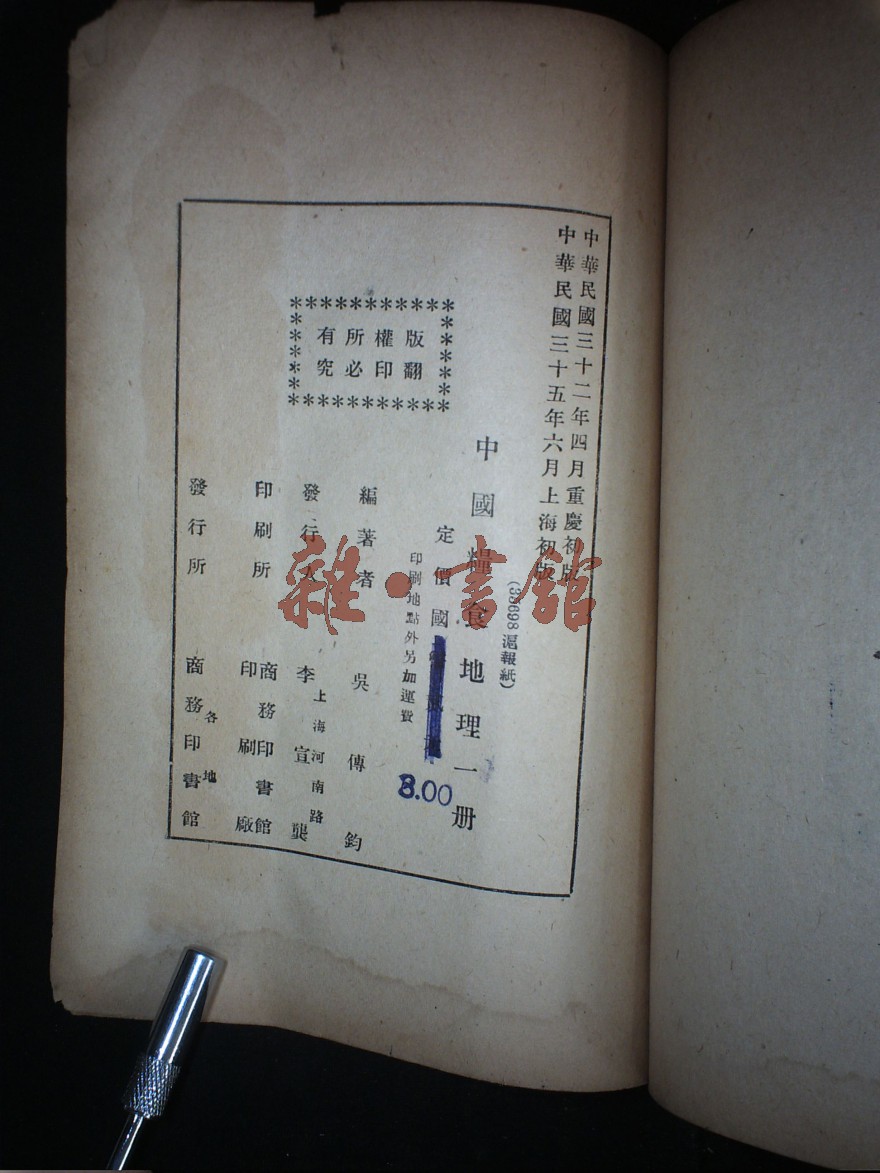 中華民國三十二年四月重慶初版
中華民國三十五年六月上海初版
(35698滬報紙)
中國糧食地理一册
定價國
8.00
印刷地點外另加運費
版權所有
翻印必究
編著者 吳傳鈞
發行人 李宣龔
上海河南路
印刷所 商務印書館
印刷廠
發行所 商務印書館
各地
雜·書館